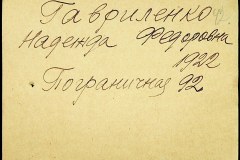 Гавриленко
Надежда Федоровна
1922
Пограничная 92